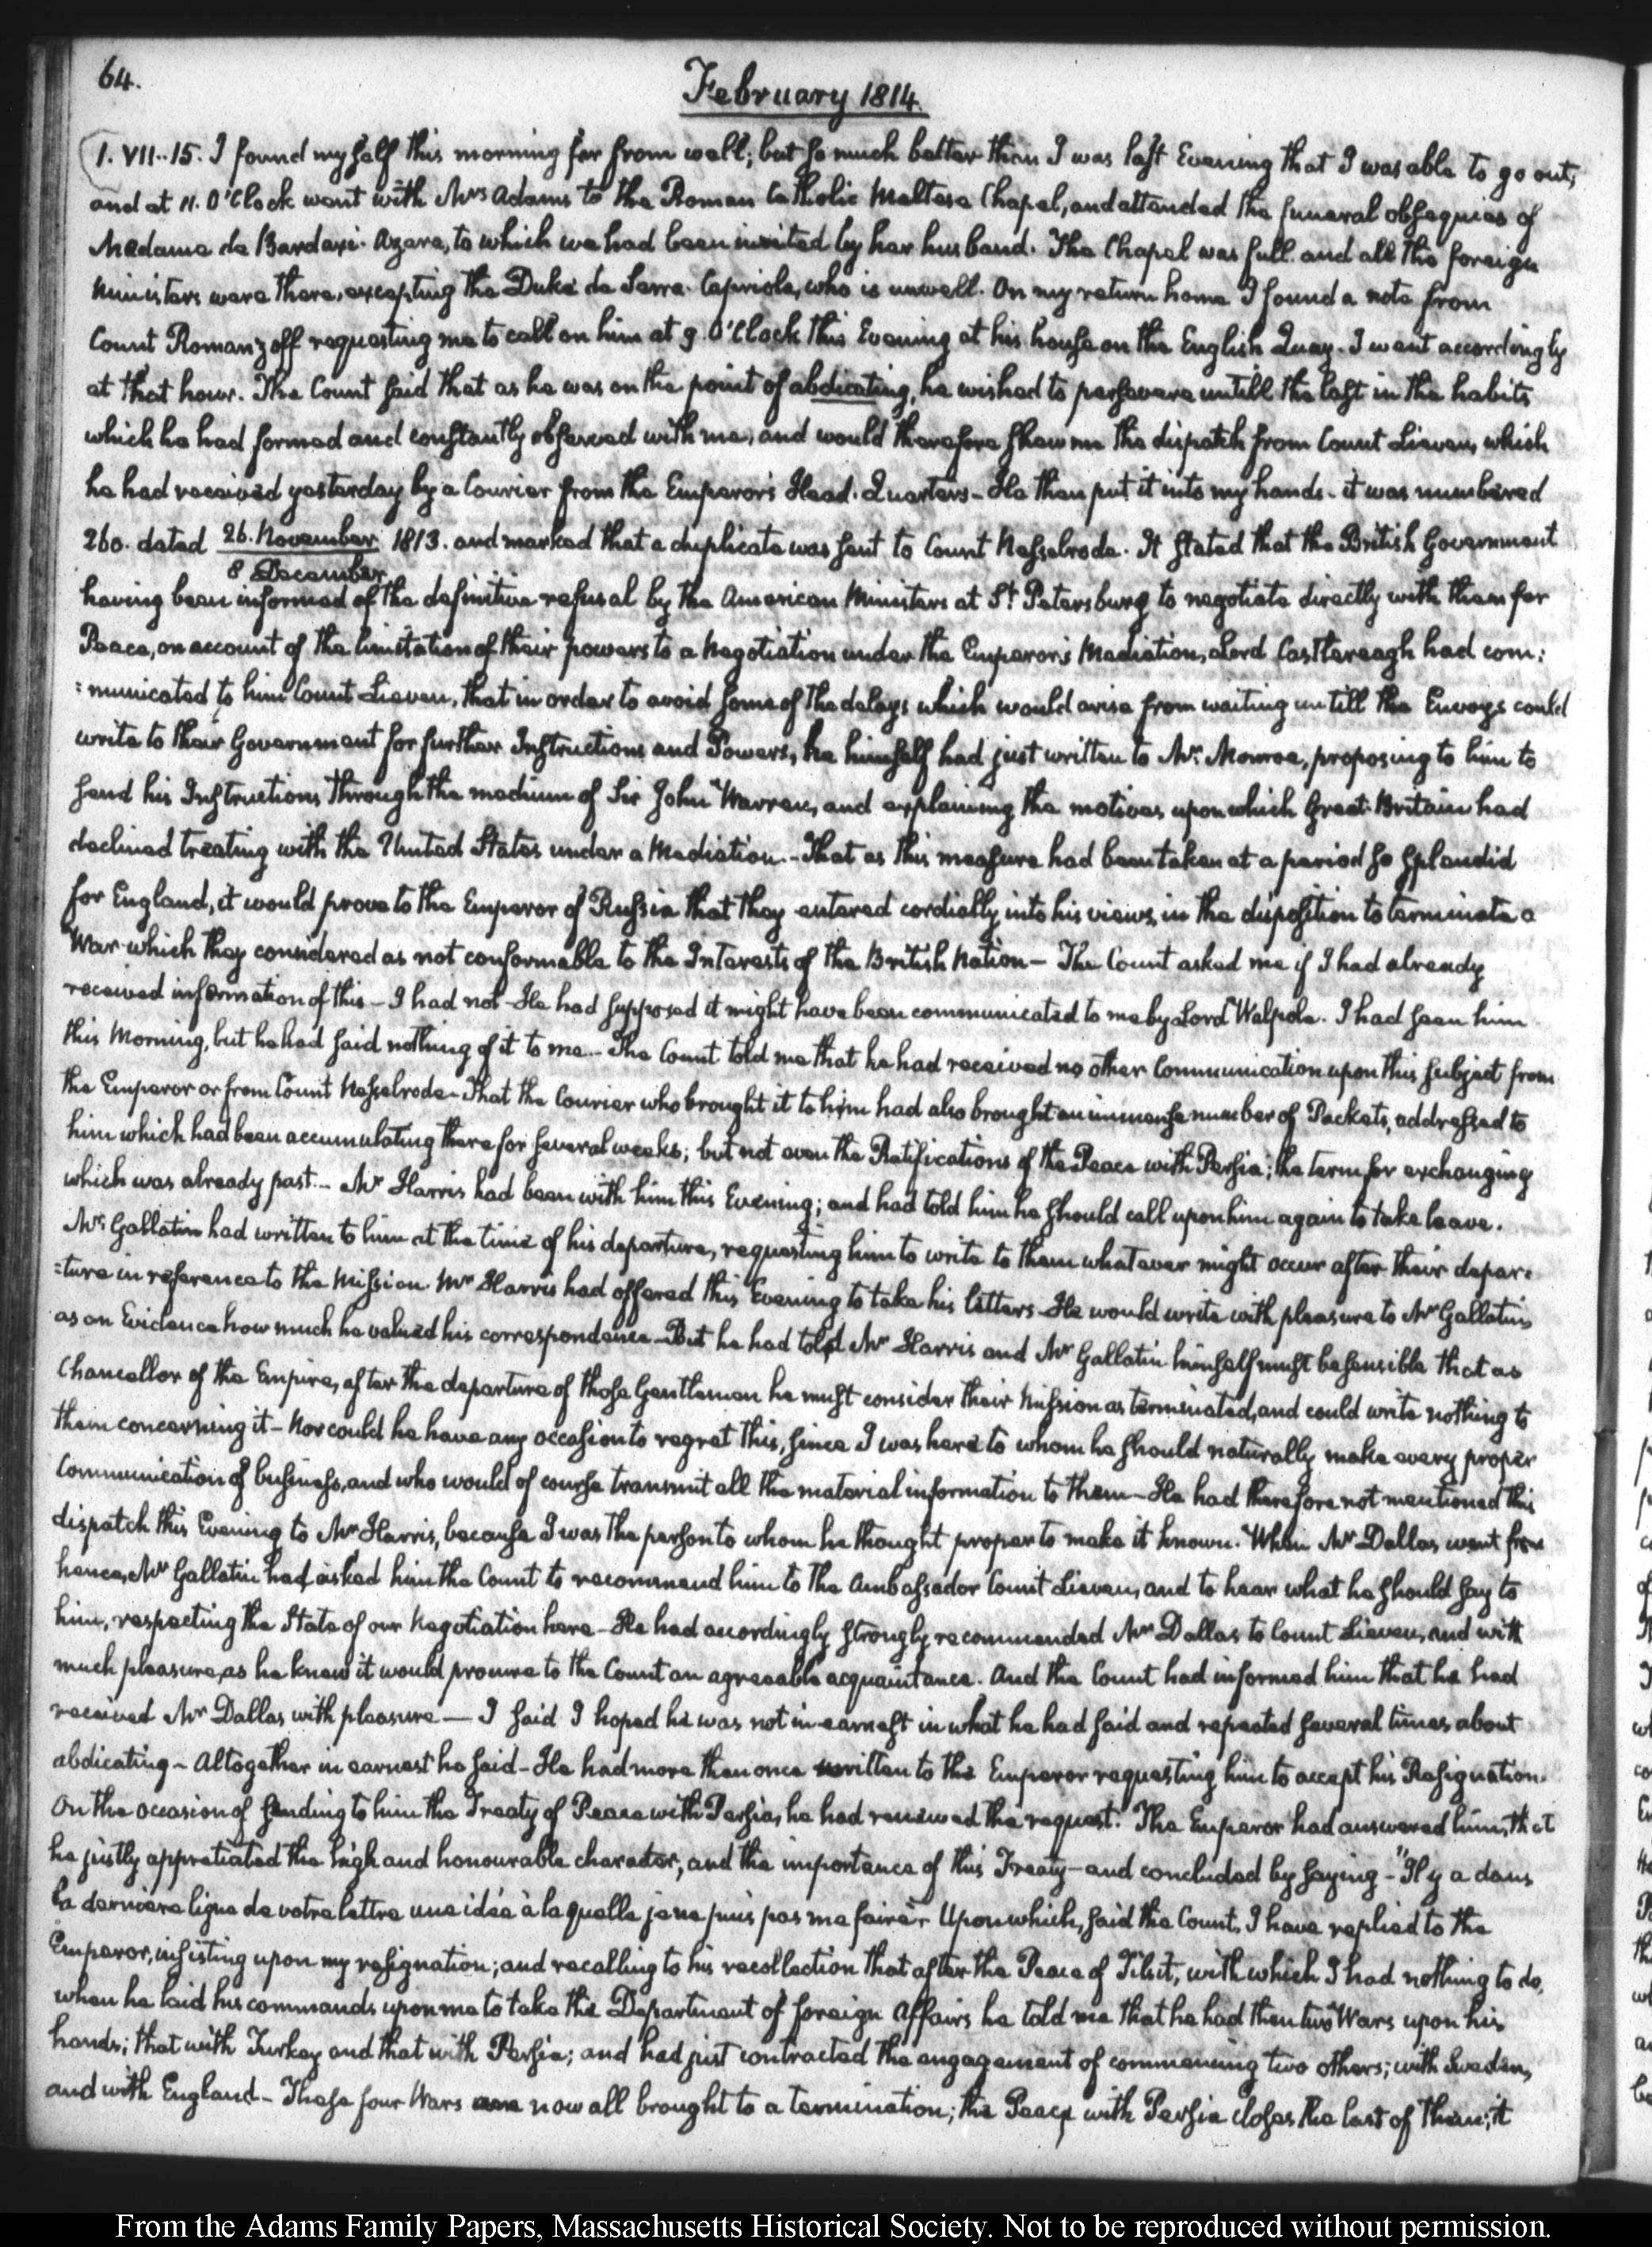 64.
February 1814.
1. VII..15. I found myself this morning far from well; but so much better than I was last Evening that I was able to go out,
and at 11. O'Clock went with Mrs Adams to the Roman Catholic Maltese Chapel, and attended the funeral obsequies of
Madame de Bardaxi-Azara, to which we had been invited by her husband. The Chapel was full and all the foreign
Ministers were there, excepting the Duke de Serra-Capriola, who is unwell. On my return home I found a note from
Count Romanzoff requesting me to call on him at 9. O'Clock this Evening at his house on the English Quay. I went accordingly
at that hour. The Count said that as he was on the point of abdicating, he wished to persevere untill the last in the habits
which he had formed and constantly observed with me, and would therefore shew me the dispatch from Count Lieven, which
he had received yesterday by a Courier from the Emperor's Head-Quarters- He then put it into my hands- it was numbered
260. dated 26. November 1813. and marked that a duplicate was sent to Count Nesselrode. It stated that the British Government
8 December
having been informed of the definitive refusal by the American Ministers at St Petersburg to negotiate directly with them for
Peace, on account of the limitation of their powers to a Negotiation under the Emperor's Mediation, Lord Castlereagh had com:
:municated to him Count Lieven, that in order to avoid some of the delays which would arise from waiting untill the Envoys could
write to their Government for further Instructions and Powers, he himself had just written to Mr. Monroe, proposing to him to
send his Instructions through the medium of Sir John Warren, and explaining the motives upon which Great-Britain had
declined treating with the United States under a Mediation.- That as this measure had been taken at a period so splendid
for England, it would prove to the Emperor of Russia that they entered cordially into his views, in the disposition to terminate a
War which they considered as not conformable to the Interests of the British Nation- The Count asked me if I had already
received information of this- I had not- He had supposed it might have been communicated to me by Lord Walpole. I had seen him
this Morning, but he had said nothing of it to me- The Count told me that he had received no other Communication upon this subject from
the Emperor or from Count Nesselrode- That the Courier who brought it to him had also brought an immense number of Packets, addressed to
him which had been accumulating there for several weeks; but not even the Ratifications of the Peace with Persia; the term for exchanging
which was already past.- Mr Harris had been with him this Evening; and had told him he should call upon him again to take leave.
Mr. Gallatin had written to him at the time of his departure, requesting him to write to them whatever might occur after their depar:
:ture in reference to the Mission. Mr Harris had offered this Evening to take his letters- He would write with pleasure to Mr Gallatin
as an Evidence how much he valued his correspondence- But he had told Mr Harris and Mr Gallatin himself must be sensible that as
Chancellor of the Empire, after the departure of those Gentlemen he must consider their Mission as terminated, and could write nothing to
them concerning it- Nor could he have any occasion to regret this, since I was here to whom he should naturally make every proper
Communication of business, and who would of course transmit all the material information to them- He had therefore not mentioned this
dispatch this Evening to Mr Harris, because I was the person to whom he thought proper to make it known. When Mr Dallas went from
hence, Mr Gallatin had asked him the Count to recommend him to the Ambassador Count Lieven, and to hear what he should say to
him, respecting the State of our Negotiation here- He had accordingly strongly recommended Mr Dallas to Count Lieven, and with
much pleasure, as he knew it would procure to the Count an agreeable acquaintance. And the Count had informed him that he had
received Mr Dallas with pleasure— I said I hoped he was not in earnest in what he had said and repeated several times about
abdicating- Altogether in earnest he said- He had more than once written to the Emperor requesting him to accept his Resignation.
On the occasion of sending to him the Treaty of Peace with Persia, he had renewed the request. The Emperor had answered him, that
he justly appretiated the high and honourable character, and the importance of this Treaty- and concluded by saying- "Il y a dans
la derniere ligne de votre lettre une idée à laquelle je ne puis pas me faire"- Upon which, said the Count, I have replied to the
Emperor, insisting upon my resignation; and recalling to his recollection that after the Peace of Tilsit, with which I had nothing to do,
when he laid his commands upon me to take the Department of foreign Affairs he told me that he had then two Wars upon his
hands; that with Turkey and that with Persia; and had just contracted the engagement of commencing two others; with Sweden,
and with England- These four Wars are now all brought to a termination; the Peace with Persia closes the last of them; it
From the Adams Family Papers, Massachusetts Historical Society. Not to be reproduced without permission.